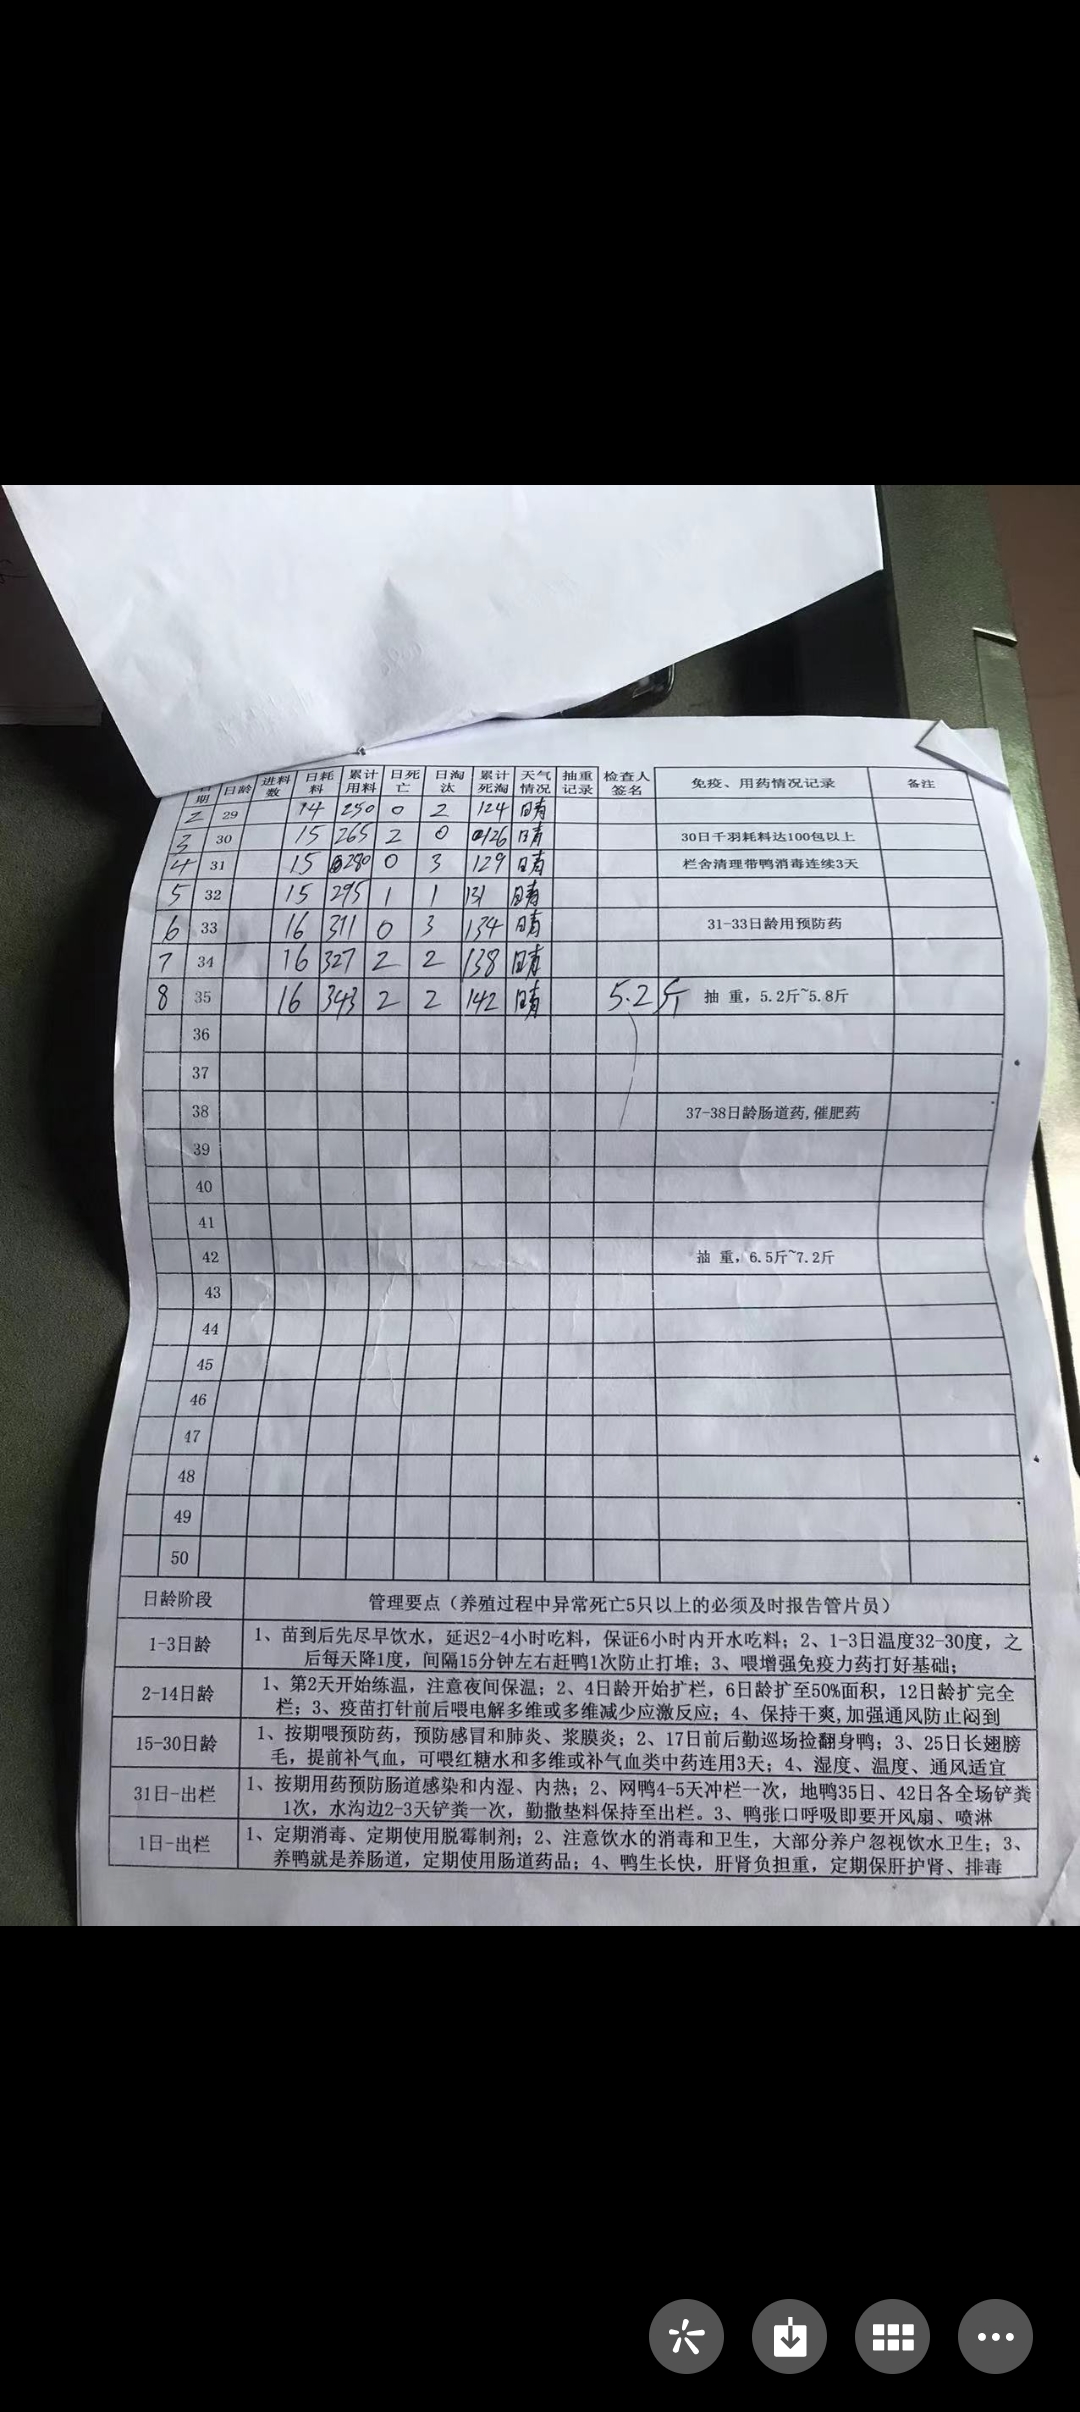 日期 日龄 进料数 日耗料 累计用料 日死亡 日淘汰 累计死淘 天气情况 抽重记录 检查人签名 免疫、用药情况记录 备注
2 29 14 250 0 2 124 晴
3 30 15 265 2 0 126 晴 30日千羽耗料达100包以上
4 31 15 280 0 3 129 晴 栏舍清理带鸭消毒连续3天
5 32 15 295 1 1 131 晴
6 33 16 311 0 3 134 晴 31-33日龄用预防药
7 34 16 327 2 2 138 晴
8 35 16 343 2 2 142 晴 5.2斤 抽 重，5.2斤~5.8斤
36
37
38 37-38日龄肠道药,催肥药
39
40
41
42 抽 重，6.5斤~7.2斤
43
44
45
46
47
48
49
50
日龄阶段 管理要点（养殖过程中异常死亡5只以上的必须及时报告管片员）
1-3日龄 1、苗到后先尽早饮水，延迟2-4小时吃料，保证6小时内开水吃料；2、1-3日温度32-30度，之
后每天降1度，间隔15分钟左右赶鸭1次防止打堆；3、喂增强免疫力药打好基础；
2-14日龄 1、第2天开始练温，注意夜间保温；2、4日龄开始扩栏，6日龄扩至50%面积，12日龄扩完全
栏；3、疫苗打针前后喂电解多维或多维减少应激反应；4、保持干爽,加强通风防止闷到
15-30日龄 1、按期喂预防药，预防感冒和肺炎、浆膜炎；2、17日前后勤巡场捡翻身鸭；3、25日长翅膀
毛，提前补气血，可喂红糖水和多维或补气血类中药连用3天；4、湿度、温度、通风适宜
31日-出栏 1、按期用药预防肠道感染和内湿、内热；2、网鸭4-5天冲栏一次，地鸭35日、42日各全场铲粪
1次，水沟边2-3天铲粪一次，勤撒垫料保持至出栏。3、鸭张口呼吸即要开风扇、喷淋
1日-出栏 1、定期消毒、定期使用脱霉制剂；2、注意饮水的消毒和卫生，大部分养户忽视饮水卫生；3、
养鸭就是养肠道，定期使用肠道药品；4、鸭生长快，肝肾负担重，定期保肝护肾、排毒